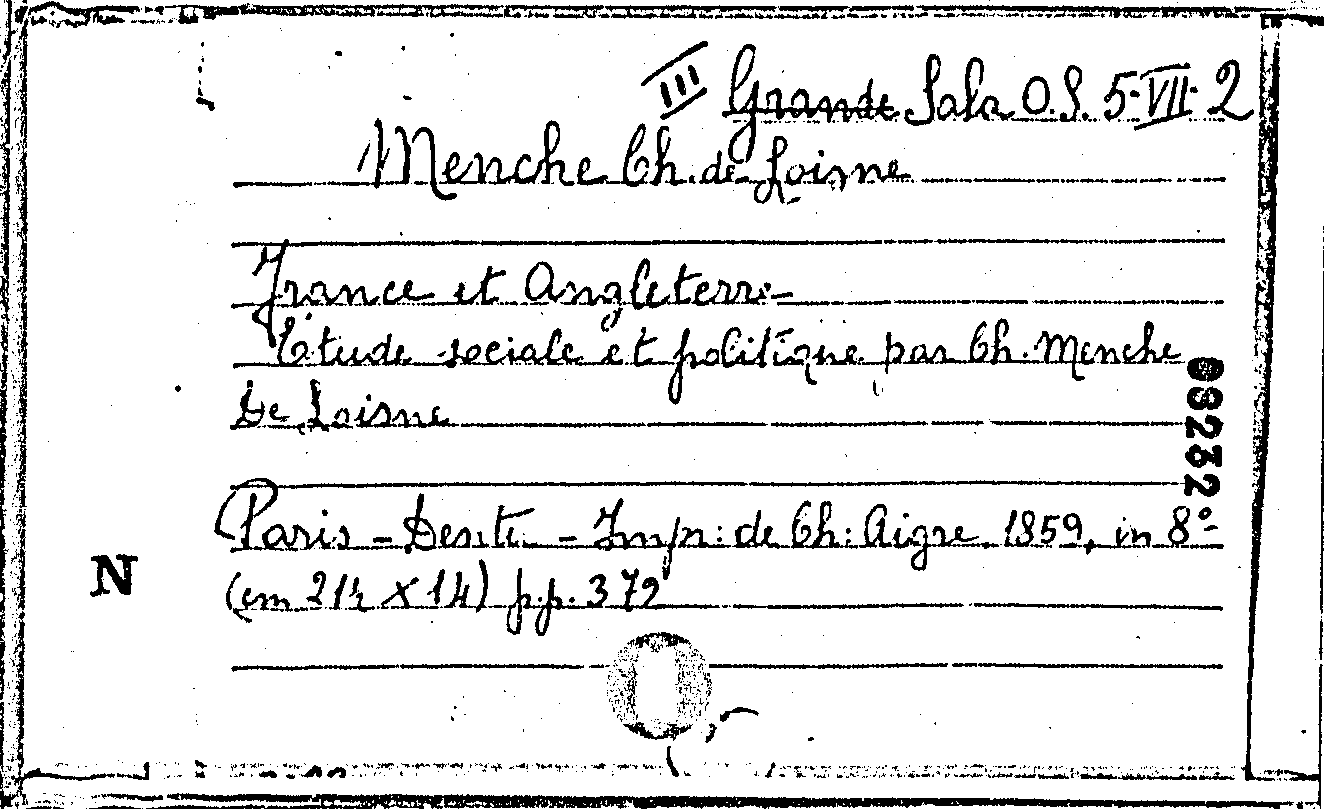 III Grande Sala O.S. 5-VII-2
Menche Ch. de Loisne
France et Angleterre
Étude sociale et politique par Ch. Menche
De Loisne
08232
Paris - Dentu - Imp: de Ch: Aigre 1859, in 8°
N
(cm 21½ X 14) p.p. 379